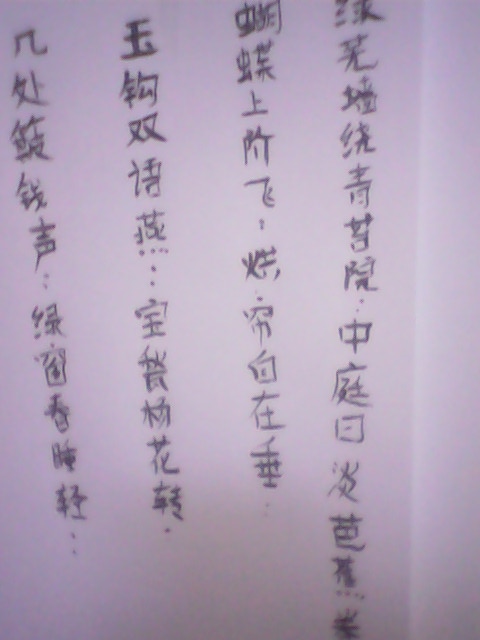 绿芜墙绕青苔院:中庭日淡芭蕉卷
蝴蝶上阶飞:烘帘自在垂:
玉钩双语燕:宝甃杨花转.
几处簸钱声:绿窗春睡轻: